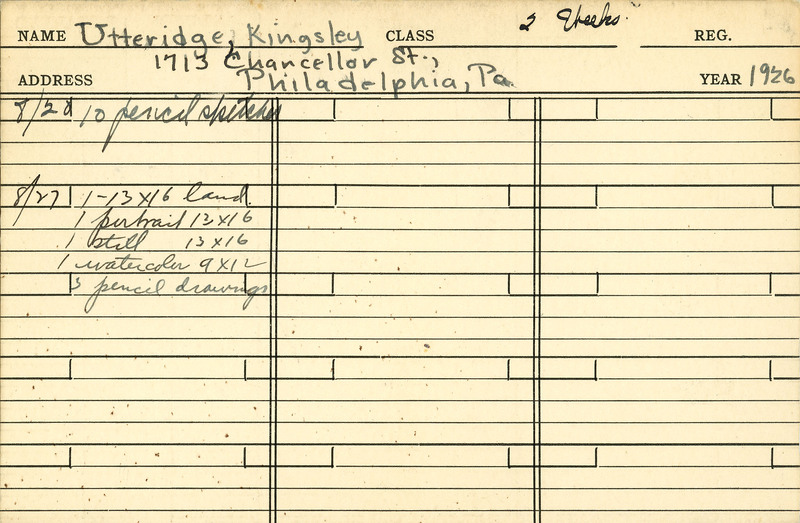 NAME Utteridge, Kingsley CLASS 2 Weeks. REG.
1713 Chancellor St.,
ADDRESS Philadelphia, Pa. YEAR 1926
10 pencil sketches
8/27 1-13x16 land.
1 portrait 13x16
1 still 13x16
1 watercolor 9x12
3 pencil drawings